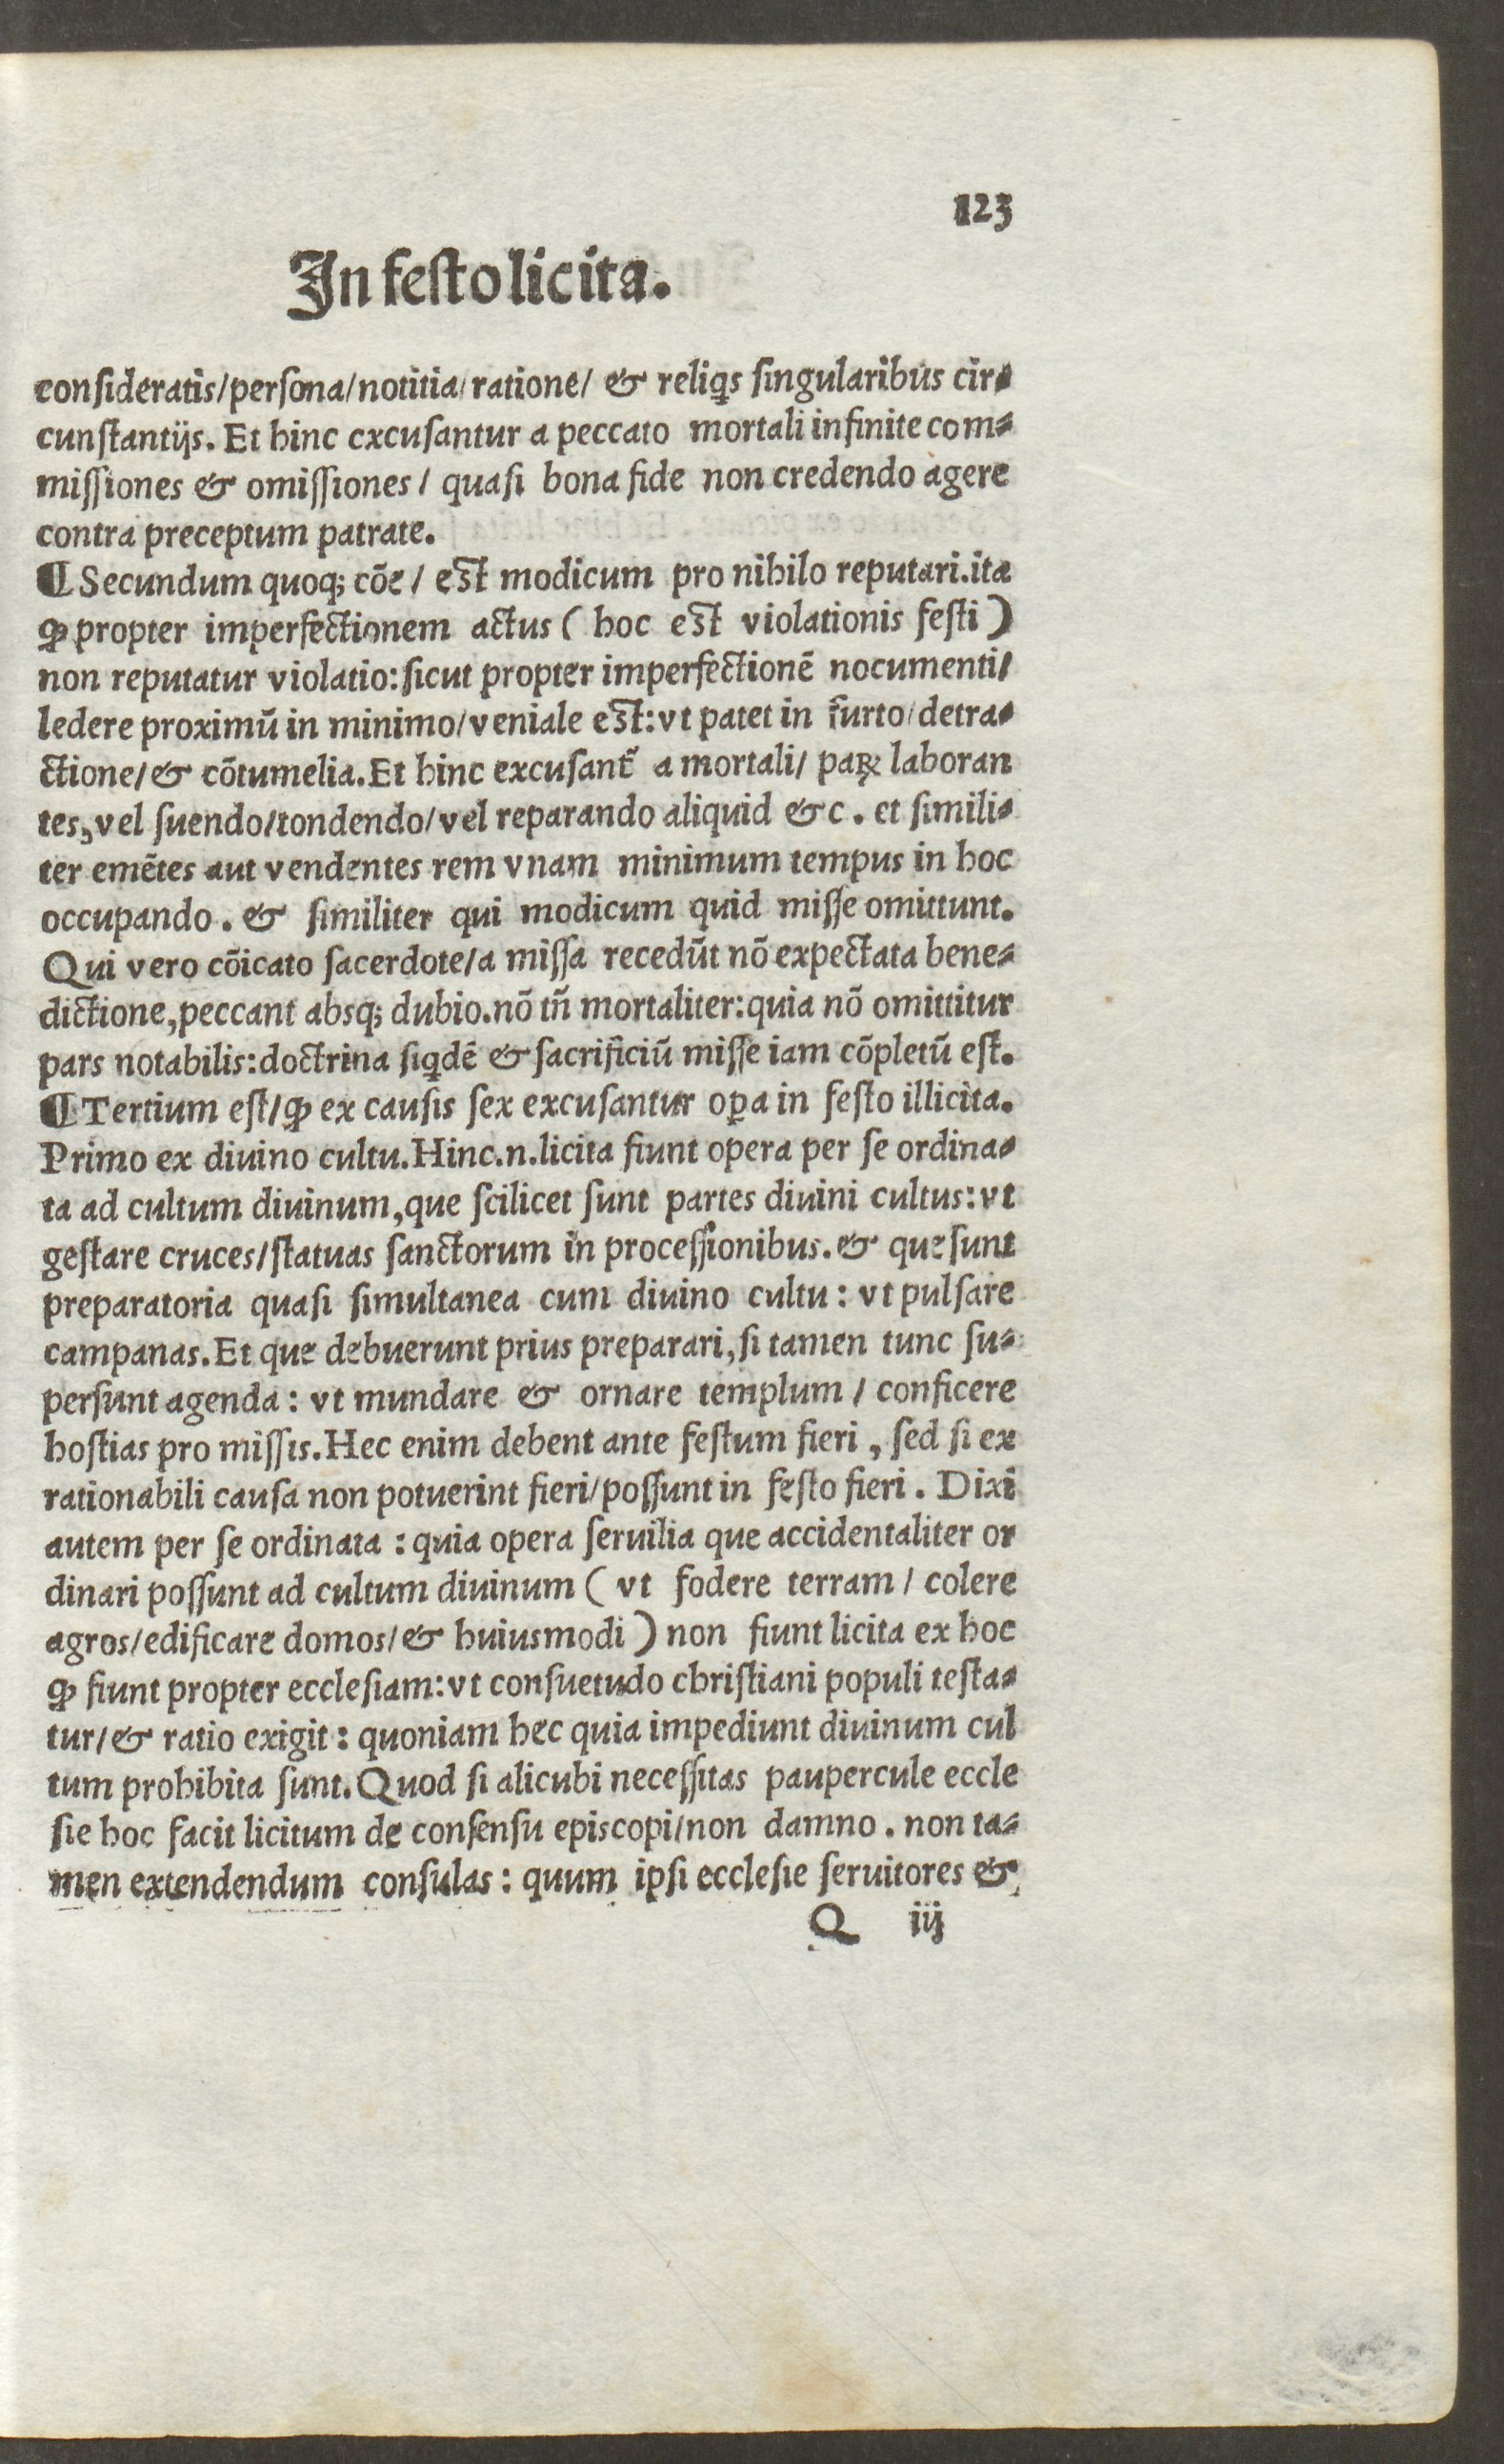 123
In festo licita.
consideratis/persona/notitia/ratione/ & reliqs singularibus cir⸗
cunstantijs. Et hinc excusantur a peccato mortali infinite com⸗
missiones & omissiones/ quasi bona fide non credendo agere
contra preceptum patrate.
¶ Secundum quoqꝫ cõe/ est modicum pro nihilo reputari.ita
ꝙ propter imperfectionem actus ( hoc est violationis festi )
non reputatur violatio: sicut propter imperfectionẽ nocumenti/
ledere proximũ in minimo/veniale est:vt patet in furto/detra⸗
ctione/& cõtumelia.Et hinc excusant̃ a mortali/ paꝝ laboran
tes,vel suendo/tondendo/vel reparando aliquid &c . et simili⸗
ter emẽtes aut vendentes rem vnam minimum tempus in hoc
occupando . & similiter qui modicum quid misse omittunt.
Qui vero cõicato sacerdote/a missa recedũt nõ expectata bene⸗
dictione,peccant absqꝫ dubio.nõ tñ mortaliter:quia nõ omittitur
pars notabilis:doctrina siqdẽ & sacrificiũ misse iam cõpletũ est.
¶ Tertium est/ꝙ ex causis sex excusantur oꝑa in festo illicita.
Primo ex diuino cultu.Hinc.n.licita fiunt opera per se ordina⸗
ta ad cultum diuinum,que scilicet sunt partes diuini cultus:vt
gestare cruces/statuas sanctorum in processionibus.& que sunt
preparatoria quasi simultanea cum diuino cultu : vt pulsare
campanas.Et que debuerunt prius preparari,si tamen tunc su⸗
persunt agenda : vt mundare & ornare templum / conficere
hostias pro missis.Hec enim debent ante festum fieri , sed si ex
rationabili causa non potuerint fieri/possunt in festo fieri . Dixi
autem per se ordinata : quia opera seruilia que accidentaliter or
dinari possunt ad cultum diuinum ( vt fodere terram / colere
agros/edificare domos/& huiusmodi ) non fiunt licita ex hoc
ꝙ fiunt propter ecclesiam:vt consuetudo christiani populi testa⸗
tur/& ratio exigit : quoniam hec quia impediunt diuinum cul
tum prohibita sunt.Quod si alicubi necessitas paupercule eccle
sie hoc facit licitum de consensu episcopi/non damno . non ta⸗
men extendendum consulas : quum ipsi ecclesie seruitores &
Q iij